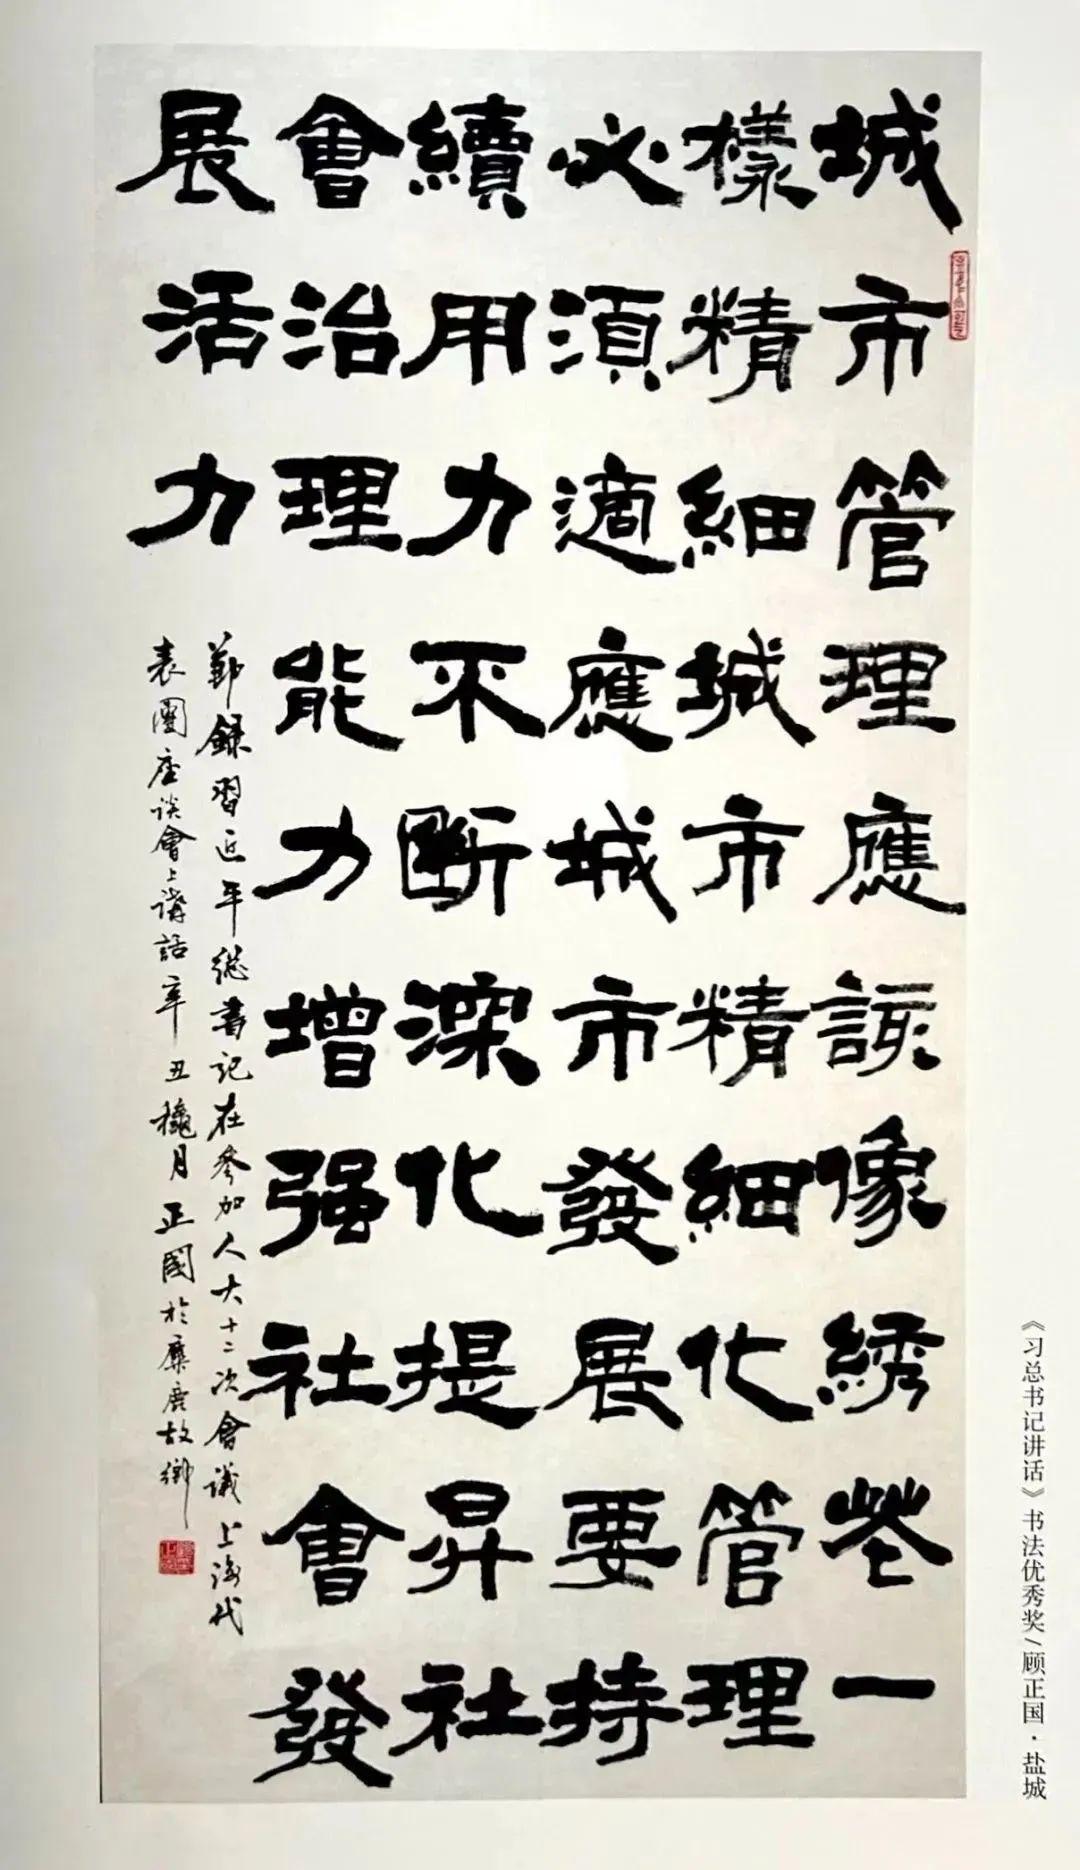 城市管理應該像綉花一
樣精細城市精細化管理
必須適應城市發展要持
續用力不斷深化提昇社
會治理能力增强社會發
展活力
鄞録習近平總書記在參加人大十二次會議上海代
表團座談會上講話辛丑穐月正國於麋鹿故鄉
《习总书记讲话》书法优秀奖/顾正国·盐城